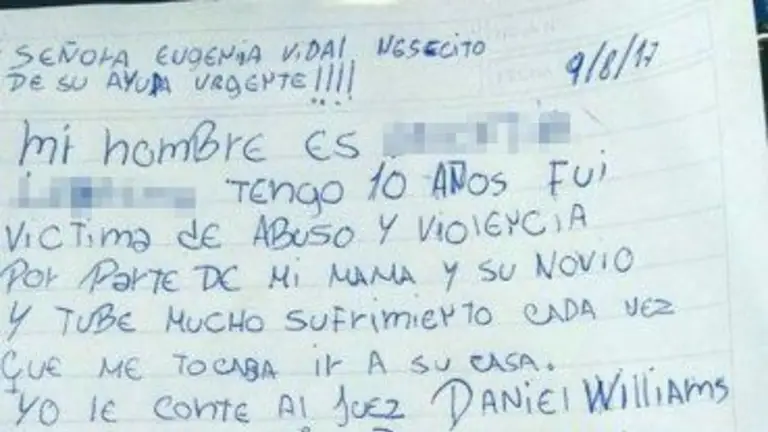 SEÑOLA EUGENIA VIDAL NESECITO
DE SU AYUDA URGENTE!!!!
9/8/17
Mi hombre ES
TENGO 10 AÑOS FUI
VICTIMA dE ABUSO Y VIOLENCIA
POR PARTE DE Mi MAMA Y SU NOVIO
Y TUBE MUCHO SUFRIMIENTO CADA VEZ
QUE ME TOCABA iR A SU CASA.
YO LE CONTE Al JUEZ DANIEl WilliAMS